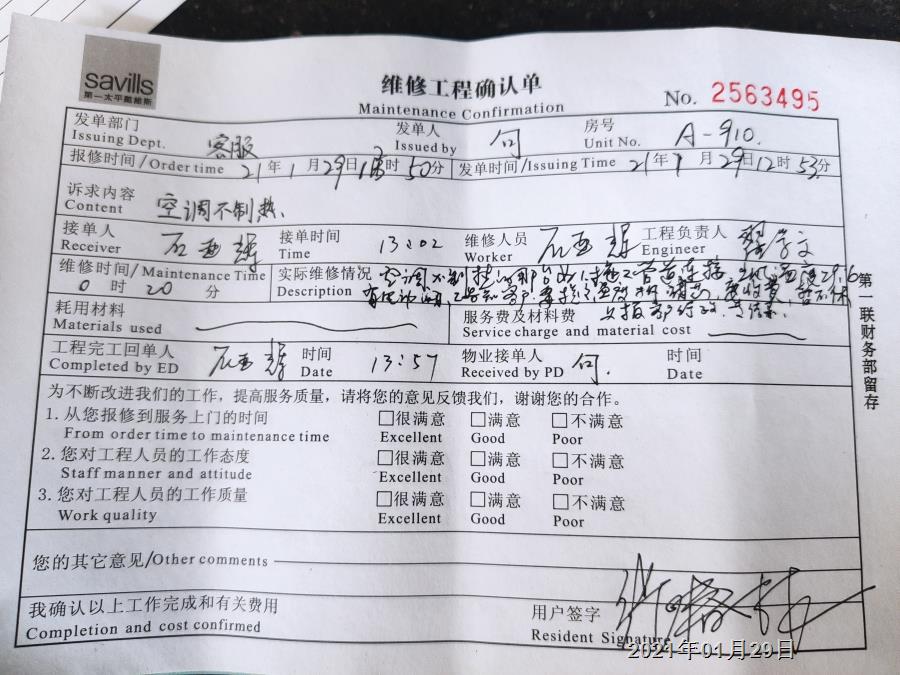 savills
第一太平戴維斯
维修工程确认单
Maintenance Confirmation
No. 2563495
发单部门 客服 发单人 房号 A-910.
Issuing Dept. Issued by Unit No.
报修时间/Order time 21年1月29日 时50分 发单时间/Issuing Time 21年1月29日12时53分
诉求内容 空调不制热、
Content
接单人 石 接单时间 13:02 维修人员 石 工程负责人
Receiver Time Worker Engineer
维修时间/Maintenance Time 实际维修情况 空调不制热
0时20分 Description
耗用材料 服务费及材料费
Materials used Service charge and material cost
工程完工回单人 石 时间 13:57 物业接单人 时间
Completed by ED Date Received by PD Date
为不断改进我们的工作，提高服务质量，请将您的意见反馈我们，谢谢您的合作。
1. 从您报修到服务上门的时间 □很满意 □满意 □不满意
From order time to maintenance time Excellent Good Poor
2. 您对工程人员的工作态度 □很满意 □满意 □不满意
Staff manner and attitude Excellent Good Poor
3. 您对工程人员的工作质量 □很满意 □满意 □不满意
Work quality Excellent Good Poor
您的其它意见/Other comments
我确认以上工作完成和有关费用 用户签字
Completion and cost confirmed Resident Signature
第一联财务部留存
2021年01月29日